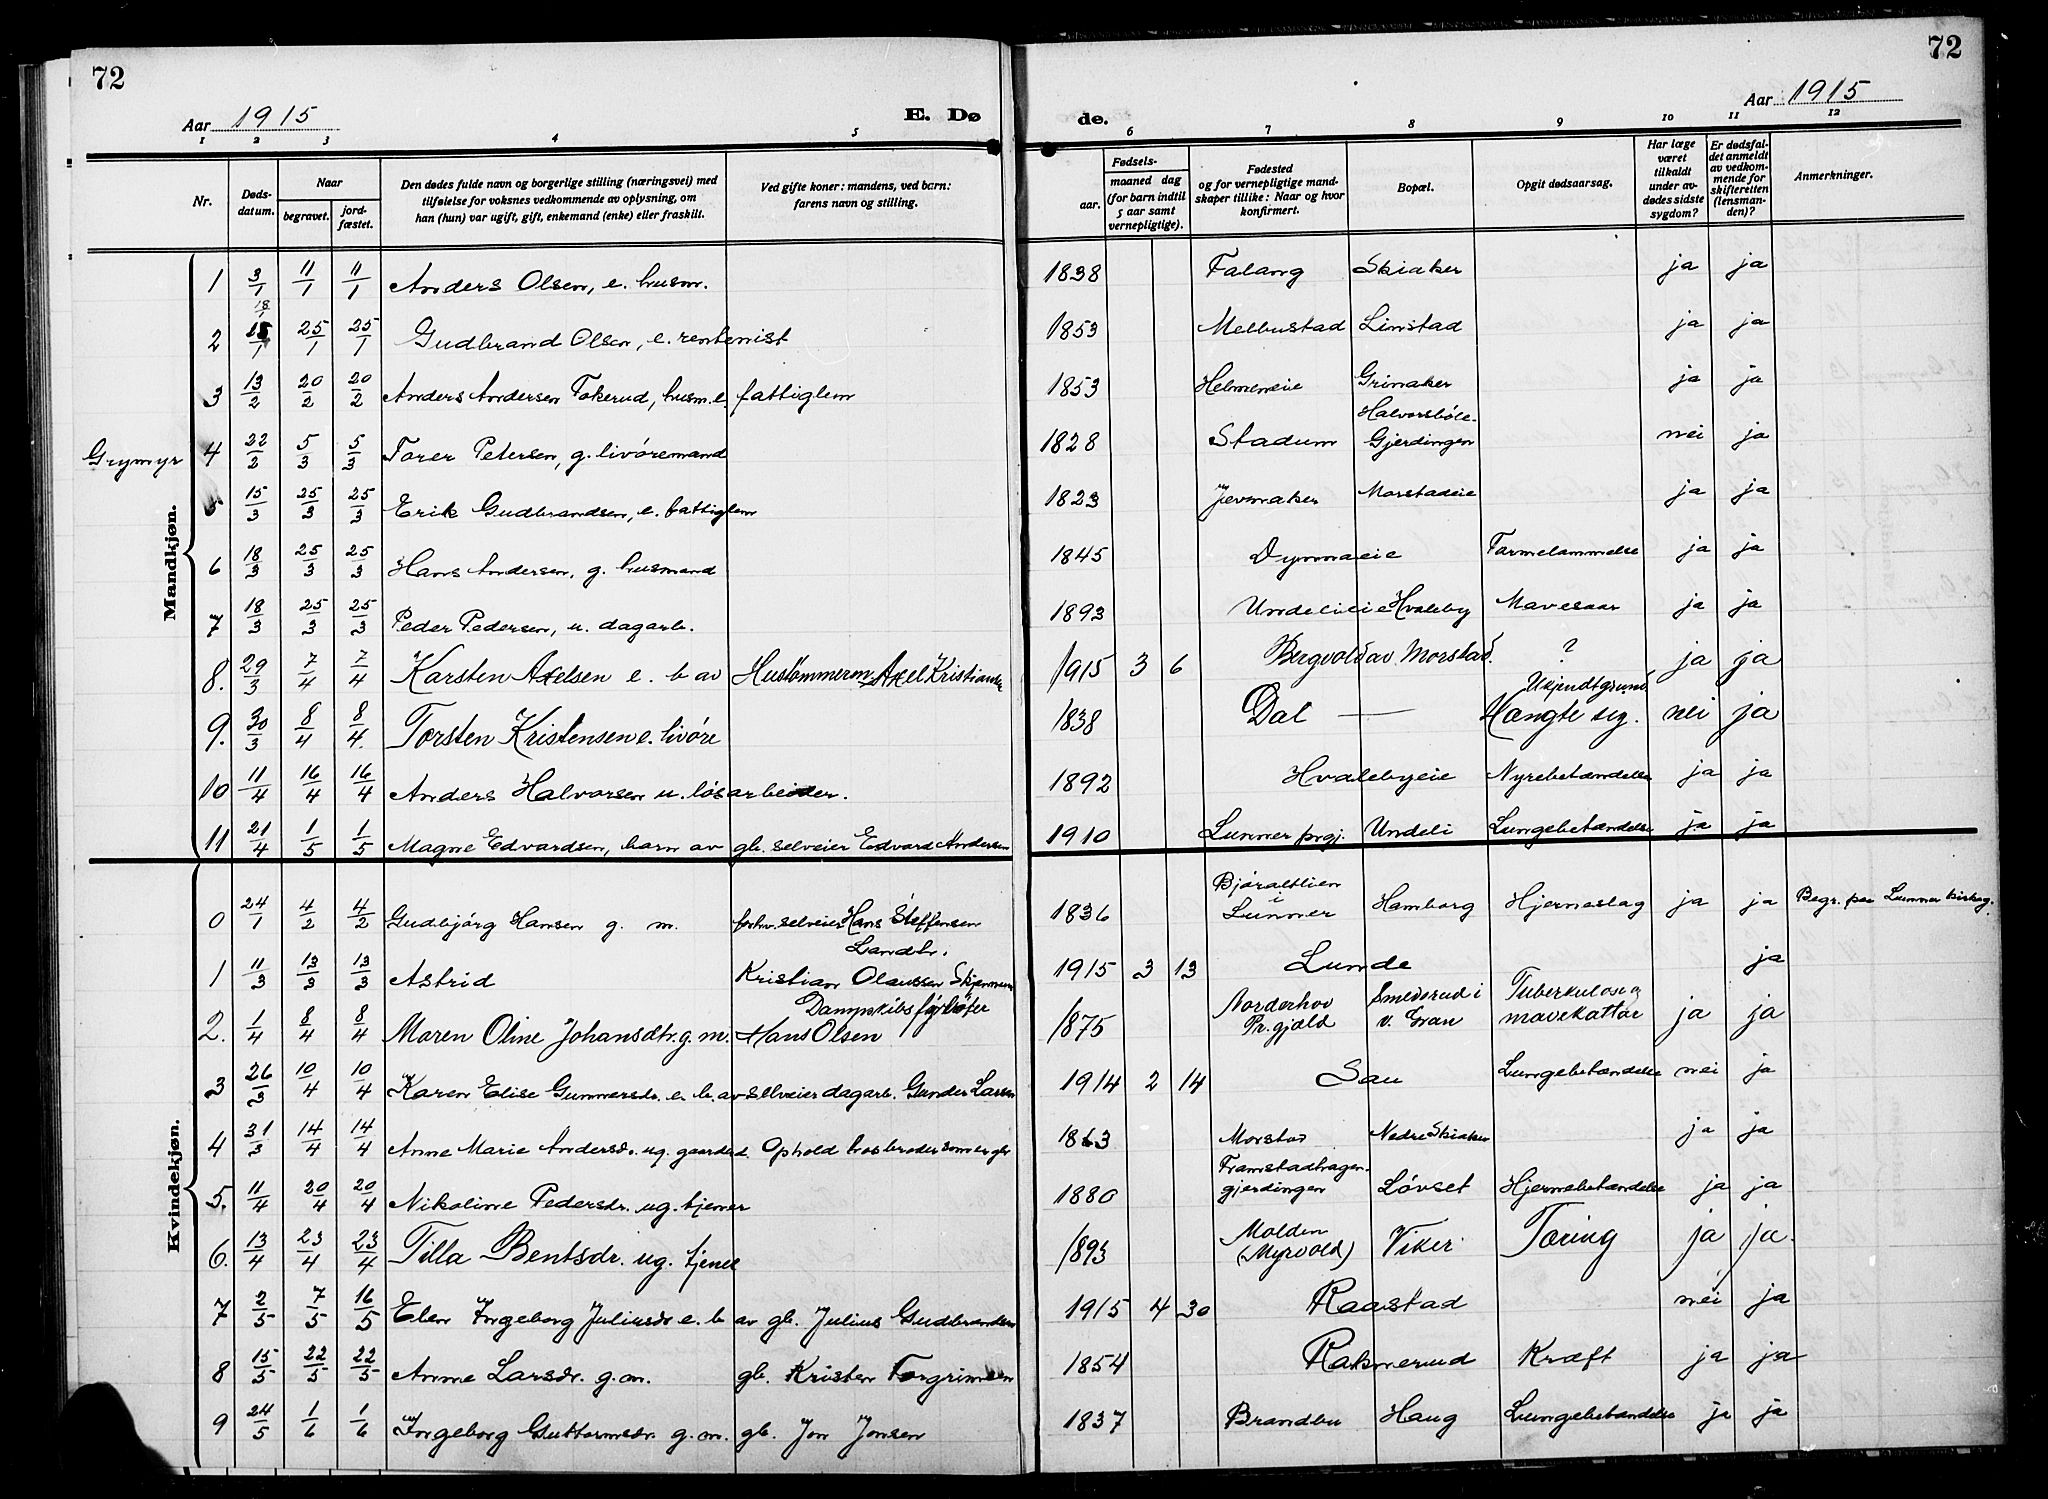 72
72
Aar 1915
E. Dø
de.
Aar 1915
1 2 3 4 5 6 7 8 9 10 11 12
Nr. Døds-datum. Naar begravet. jord-fæstet. Den dødes fulde navn og borgerlige stilling (næringsvei) med tilføielse for voksnes vedkommende av oplysning, om han (hun) var ugift, gift, enkemand (enke) eller fraskilt. Ved gifte koner: mandens, ved barn: farens navn og stilling. Fødsels- aar. maaned dag (for barn indtil 5 aar samt vernepligtige). Fødested og for vernepligtige mand-skaper tillike: Naar og hvor konfirmert. Bopæl. Opgit dødsaarsag. Har læge været tilkaldt under av-dødes sidste sygdom? Er dødsfal-det anmeldt av vedkom-mende for skifteretten (lensman-den)? Anmerkninger.
Mandkjøn.
1 3/1 11/1 11/1 Anders Olsen, e. husm. 1838 Falang Skiaker ja ja
18/1
2 15/1 25/1 25/1 Gudbrand Olsen, e. rentenist 1853 Melbustad Linstad ja ja
3 13/2 20/2 20/2 Anders Andersen Tokerud, husm. e. fattiglem 1853 Helmeneie Grinaker ja ja
Grymyr 4 22/2 5/3 5/3 Torer Petersen, g. livøremand 1828 Stadum Halvorsböle-Gjerdingen nei ja
5 15/3 25/3 25/3 Erik Gudbrandsen, e. fattiglem 1823 Jevnaker Morstadeie ja ja
6 18/3 25/3 25/3 Hans Andersen, g. husmand 1845 Dynnaeie Tarmelammelse ja ja
7 18/3 25/3 25/3 Peder Pedersen, u. dagarb. 1893 Undelieie Hvaleby Mavesaar ja ja
8. 29/3 7/4 7/4 Karsten Axelsen e. b av Hustømmerm Axel Kristianse 1915 3 6 Bergvold av Morstad. ? ja ja
9. 30/3 8/4 8/4. Torsten Kristensen e. livøre 1838 Dal — Ukjendt grund Hængte sig. nei ja
10 11/4 16/4 16/4 Anders Halvorsen u. løsarbeider. 1892 Hvalebyeie Nyrebetændelse ja ja
11 21/4 1/5 1/5 Magne Edvardsen, barn av gb. selveier Edvard Andersen 1910 Lunner prgj. Undeli Lungebetændelse ja ja
Kvindekjøn.
0 24/1 4/2 4/2 Gudbjørg Hansen g. m. forhv. selveier Hans Steffensen 1836 Bjøraltlien i Lunner Hamborg Hjerneslag ja ja Begr. paa Lunner kirkeg.
1 11/3 13/3 13/3 Astrid Landbr. Kristian Olaussen Skjennum 1915 3 13 Lunde ja
2. 1/4 8/4 8/4 Maren Oline Johansdtr. g. m. Dampskibsfyrbøter Hans Olsen 1875 Norderhov Pr.gjæld Smederud i v. Gran Tuberkulose og mavekattar ja ja
3 26/3 10/4 10/4 Karen Elise Gunnersdr. e. b. av selveier dagarb. Gunder Larsen 1914 2 14 Sau Lungebetændelse nei ja
4 31/3 14/4 14/4 Anne Marie Andersdr. ug. gaardsd. Ophold hos broder som er gb 1863 Morstad Nedre Skiaker ja ja
5. 11/4 20/4 20/4 Nikoline Pedersdr. ug. tjener 1880 Framstadhagen-gjerdingen Løvset Hjernebetændelse ja ja
6. 13/4 23/4 23/4 Tilla Bentsdr. ug. tjener 1893 Molden (Myrvold) Viker Tæring ja ja.
7 2/5 7/5 16/5 Elen Ingeborg Juliusdr e. b av gb. Julius Gudbrandsen 1915 4 30 Raastad nei ja
8 15/5 22/5 22/5 Anne Larsdr. g. m. gb. Kristen Torgrimsen 1854 Raknerud Kræft ja ja
9 24/5 1/6 1/6 Ingeborg Guttormsdr. g. m. gb. Jon Jonsen 1837 Brandbu Haug Lungebetændelse ja ja